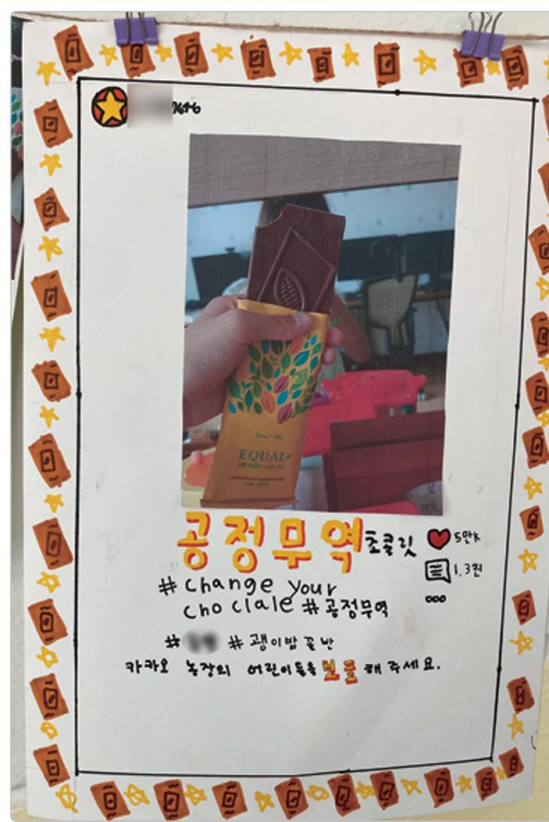 공정무역 초콜릿
5만K
1.3천
# change your
choclale #공정무역
# # 괭이밥꽃반
카카오 농장의 어린이들을 보호해 주세요.
EQUAL